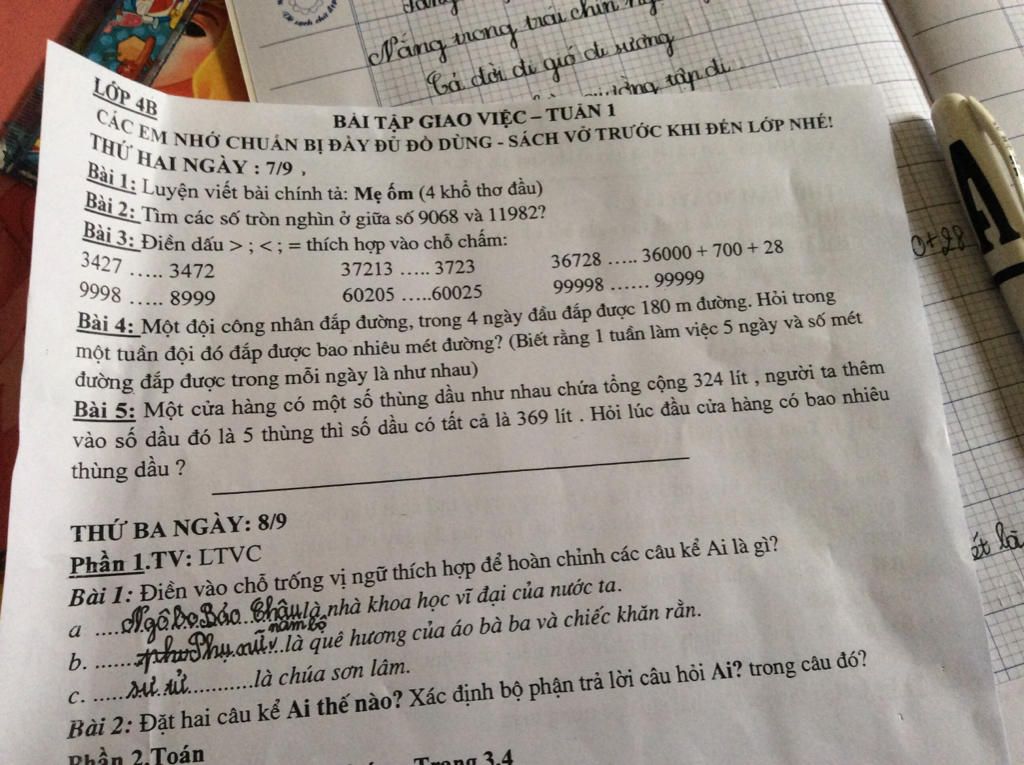 Nắng trong trái chín
Cả đời đi gió đi sương
tập đi
LỚP 4B
BÀI TẬP GIAO VIỆC – TUẦN 1
CÁC EM NHỚ CHUẨN BỊ ĐẦY ĐỦ ĐỒ DÙNG - SÁCH VỞ TRƯỚC KHI ĐẾN LỚP NHÉ!
THỨ HAI NGÀY : 7/9 ,
Bài 1: Luyện viết bài chính tả: Mẹ ốm (4 khổ thơ đầu)
Bài 2: Tìm các số tròn nghìn ở giữa số 9068 và 11982?
Bài 3: Điền dấu > ; < ; = thích hợp vào chỗ chấm:
3427 ..... 3472 37213 ..... 3723 36728 ..... 36000 + 700 + 28
9998 ..... 8999 60205 .....60025 99998 ...... 99999
Bài 4: Một đội công nhân đắp đường, trong 4 ngày đầu đắp được 180 m đường. Hỏi trong
một tuần đội đó đắp được bao nhiêu mét đường? (Biết rằng 1 tuần làm việc 5 ngày và số mét
đường đắp được trong mỗi ngày là như nhau)
Bài 5: Một cửa hàng có một số thùng dầu như nhau chứa tổng cộng 324 lít , người ta thêm
vào số dầu đó là 5 thùng thì số dầu có tất cả là 369 lít . Hỏi lúc đầu cửa hàng có bao nhiêu
thùng dầu ?
THỨ BA NGÀY: 8/9
Phần 1.TV: LTVC
Bài 1: Điền vào chỗ trống vị ngữ thích hợp để hoàn chỉnh các câu kể Ai là gì?
a ....Ngô Bảo Châu là nhà khoa học vĩ đại của nước ta.
b. ......Phụ nữ nam bộ..là quê hương của áo bà ba và chiếc khăn rằn.
c. .....sư tử...........là chúa sơn lâm.
Bài 2: Đặt hai câu kể Ai thế nào? Xác định bộ phận trả lời câu hỏi Ai? trong câu đó?
Phần 2.Toán
Trang 3,4
0+28
A
ét là